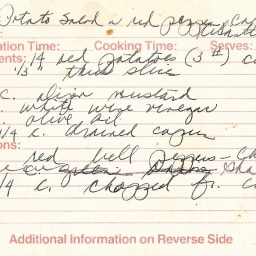 Potato Salad a red pepper
ation Time: Cooking Time: Serves:
ents: 14 red potatoes (3#)
1/3" thick slice
C. dijon mustard
white wine vinegar
olive oil
1/4 c. drained capers
ons:
red bell peppers - Ch
1/4 C. chopped fr.
Additional Information on Reverse Side